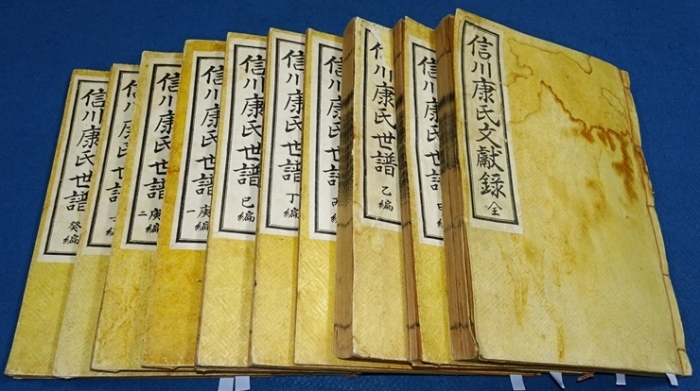 信川康氏文獻錄 全
信川康氏世譜 甲編
信川康氏世譜 乙編
信川康氏世譜 丙編
信川康氏世譜 丁編
信川康氏世譜 巳編
信川康氏世譜 庚編 一
信川康氏世譜 庚編 二
信川康氏世譜
信川康氏世譜 癸編